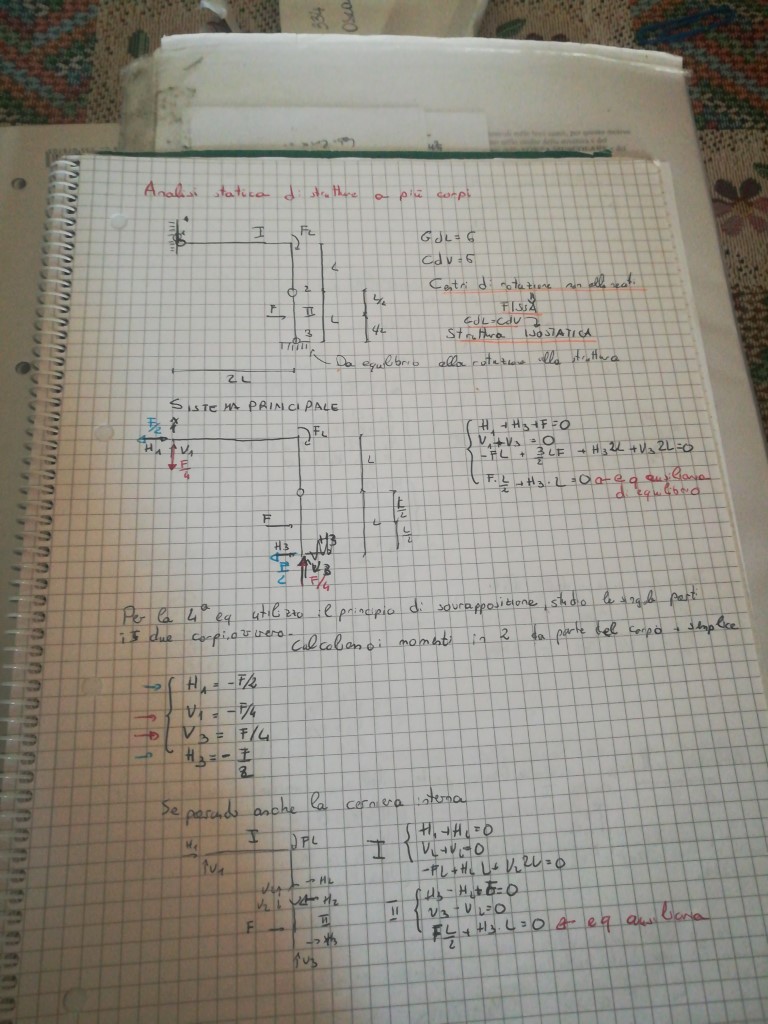 334
Osca
Analisi statica di strutture a più corpi
I
FL
GdL = 6
CdV = 6
L
Centri di rotazione non allineati
2
F
II
L
L/2
FISSA
GdL = CdV
3
Struttura ISOSTATICA
Da equilibrio alla rotazione alla struttura
2L
SISTEMA PRINCIPALE
F/2
H1
V1
F/4
FL
H1 + H3 + F = 0
V1 + V3 = 0
-FL + 3/2 LF + H3 2L + V3 2L = 0
L
F · L/2 + H3 · L = 0 eq ausiliaria
di equilibrio
F
L
L/2
H3
V3
F/4
Per la 4ª eq utilizzo il principio di sovrapposizione, studio le singole parti
i due corpi, ovvero. Calcolano i momenti in 2 da parte del corpo + semplice
H1 = -F/2
V1 = -F/4
V3 = F/4
H3 = - F/2
Separando anche la cerniera interna
H1
I
FL
V1
H2
V2
H2
F
II
H3
V3
I
H1 + H2 = 0
V1 + V2 = 0
-FL + H2 L + V2 2L = 0
II
H3 - H2 + F = 0
V3 - V2 = 0
FL/2 + H3 · L = 0 eq ausiliaria